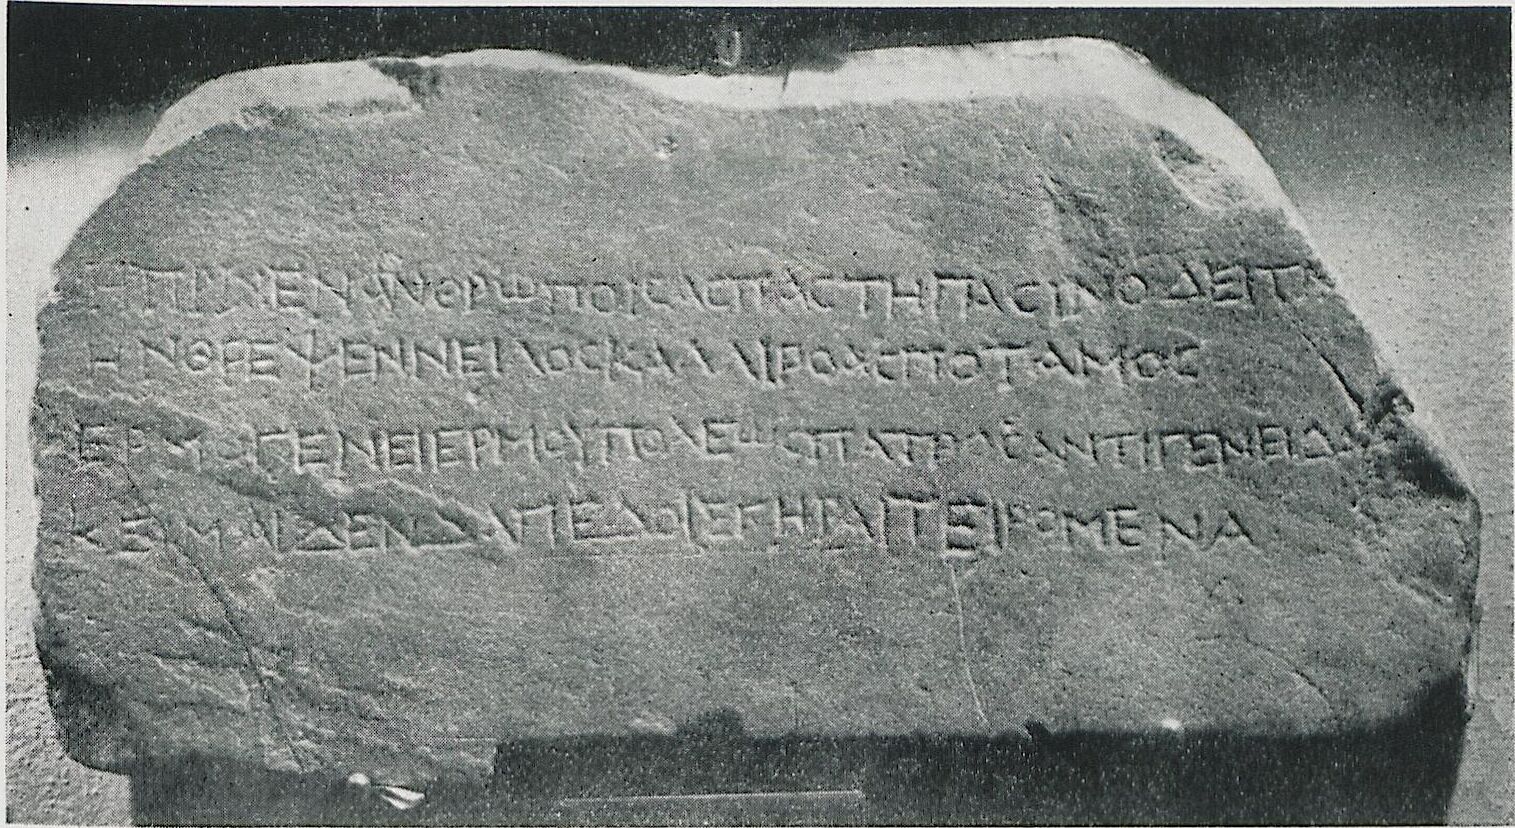 ΕΝΑΝΘΡΩΠΟΙϹΑϹΠΑϹΤΗΠΑϹΙΝΟΔΕΙΤΑ
ΗΝΘΡΕΨΕΝΝΕΙΛΟϹΚΑΛΛΙΡΟΑϹΠΟΤΑΜΟϹ
ΕΡΜΟΓΕΝΕΙΕΡΜΟΥΠΟΛΕΩϹΠΑΤΡΑϹΑΝΤΙΓΕΝΕΙΔΑ
ΚΕΙΜΑΙΔΕΝΔΑΠΕΔΟΙϹΓΗΡΑΙΤΕΙΡΟΜΕΝΑ